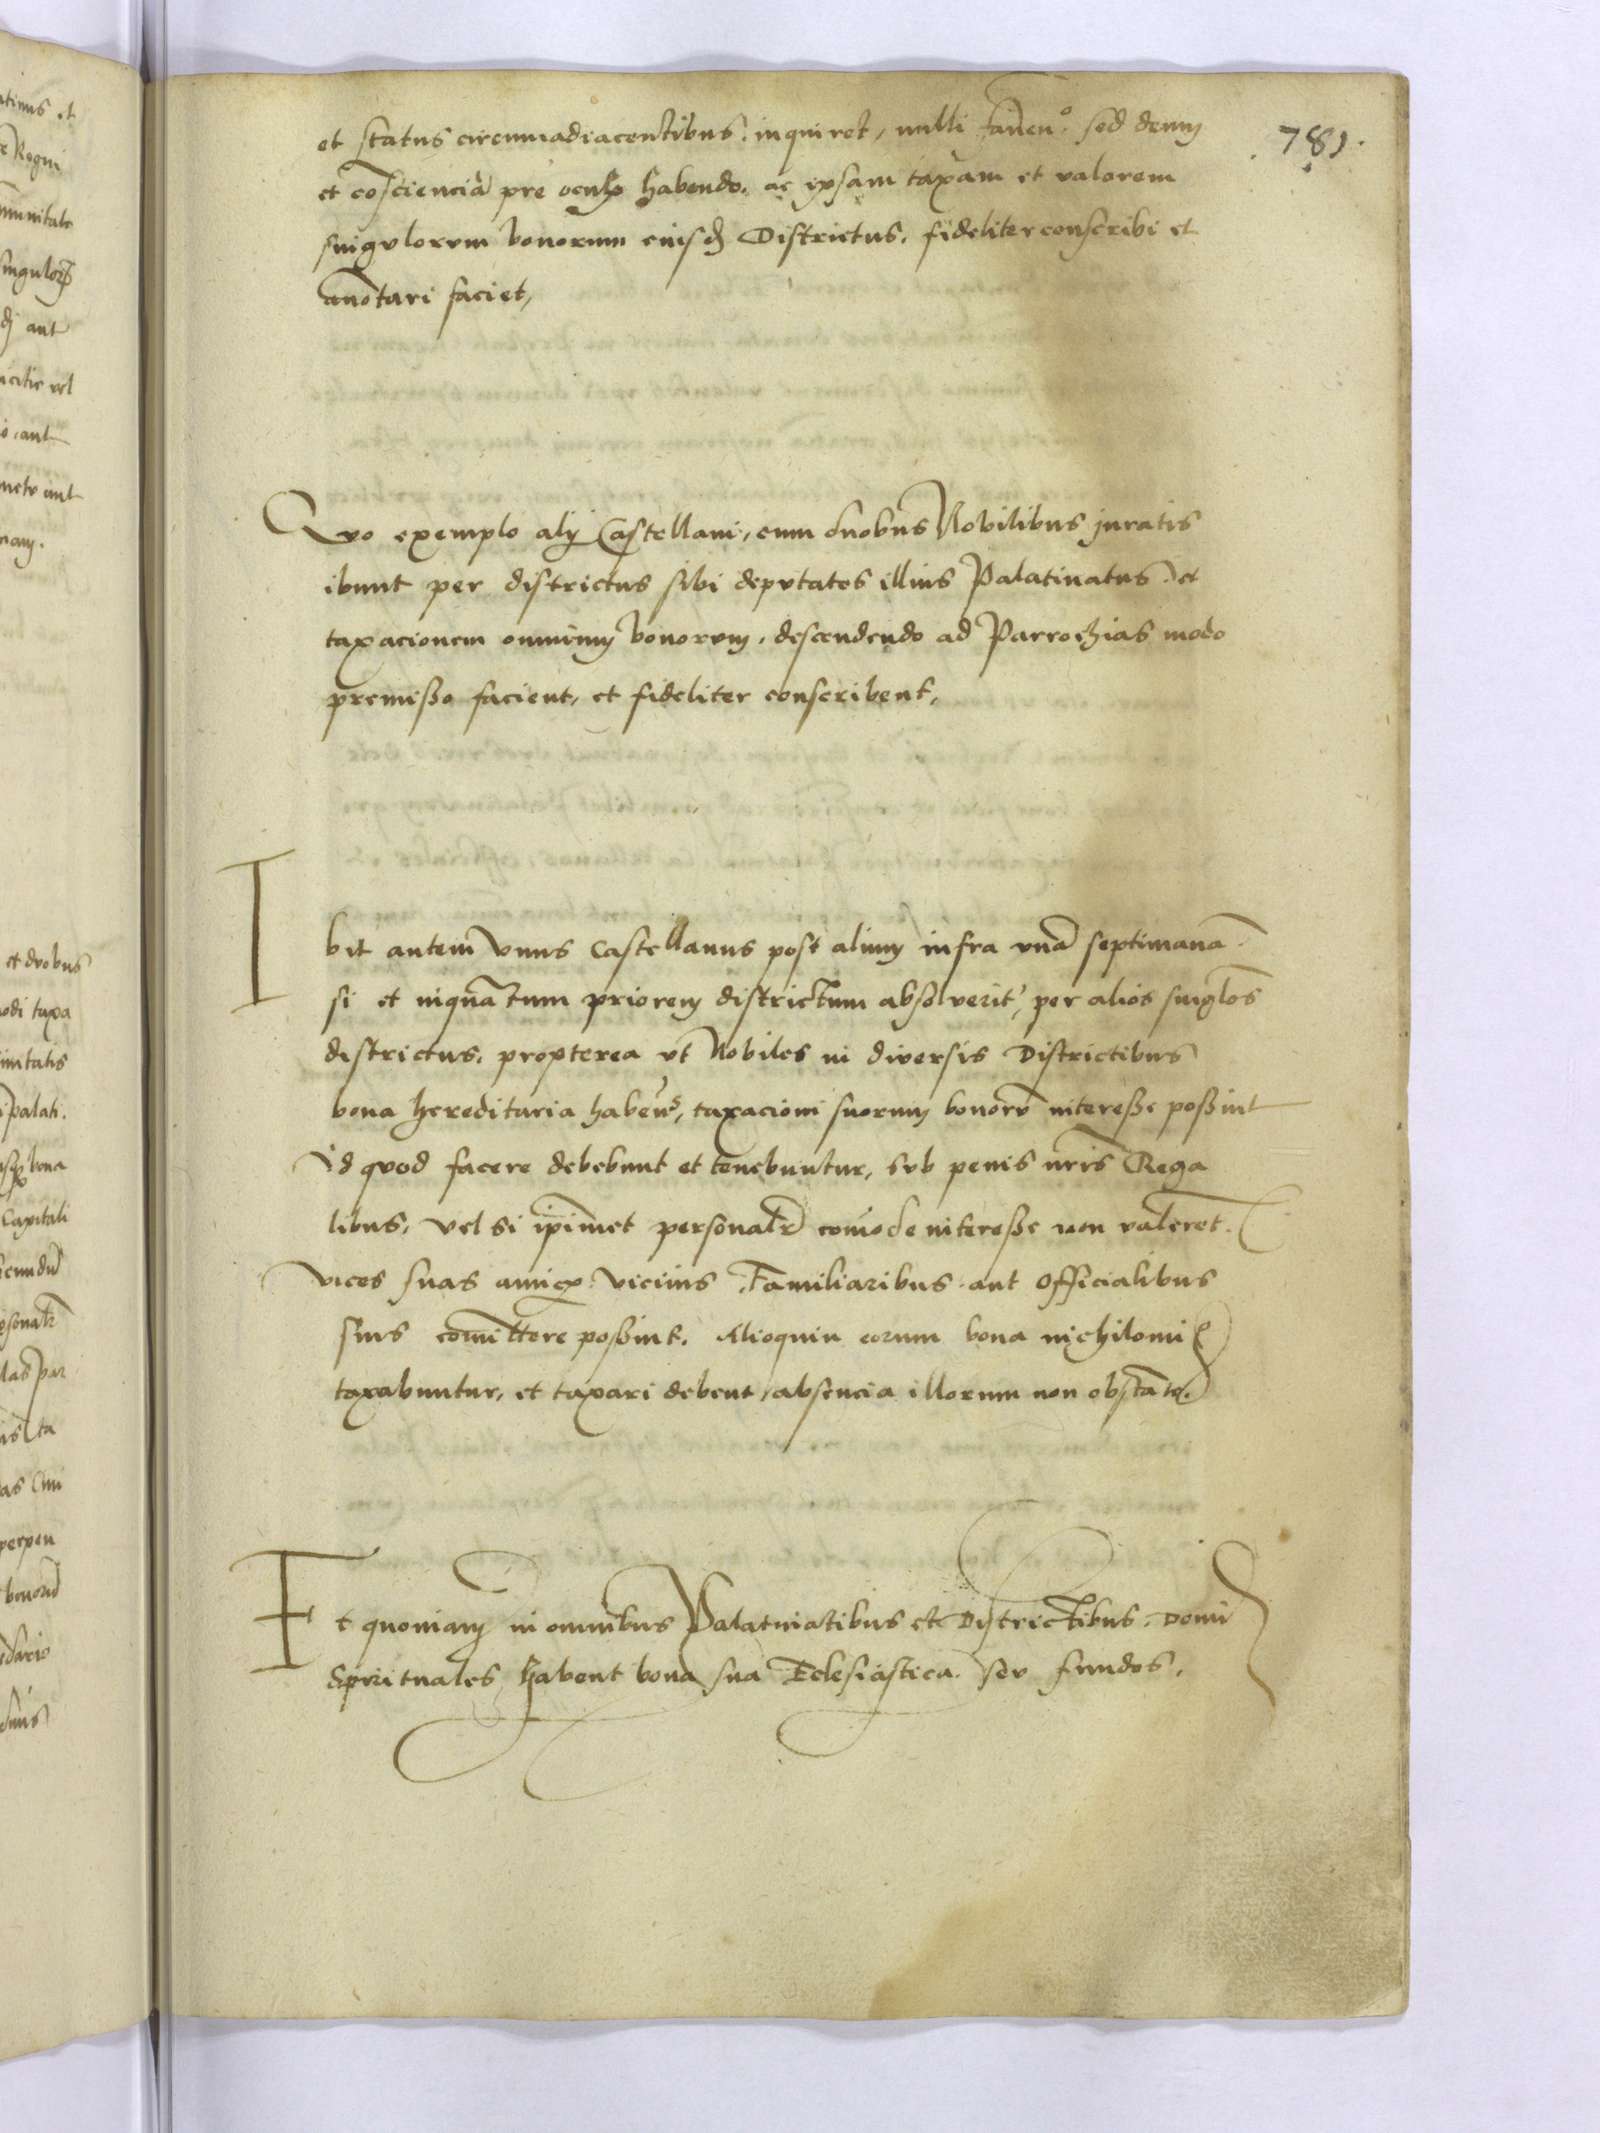 781.
et status circumadiacentibus. inquiret, nulli fauen⁰. sed deum
et cōscienciā prē oculis habendo. ac ipsam taxam et valorem
singulorum bonorum eiusd Districtus. fideliter conscribi et
annōtari faciet,
Quo exemplo alij Castellani, cum duobus Nobilibus juratis
ibunt per districtus sibi deputatos illius Palatinatus. et
taxacionem omnium bonorum, descendendo ad Parrochias modo
premißo facient, et fideliter conscribent,
Ibit autem vnus Castellanus post alium infra vnā septimanā
si et inquātum priorem districtum absoluerit, per alios singl̄os
districtus. propterea vt Nobiles in diversis Districtibus
bona hereditaria haben̄s, taxacioni suorum bonorū intereße poßint
Id quod facere debebunt et tenebuntur, sub penis nr̄is Rega
libus, vel si ip̄imet personalr̄ com̄ode intereße non valeret.
vices suas amicis vicinis Familiaribus aut Officialibus
suis com̄ittere poßint. Alioquin eorum bona nichilomi⁹
taxabuntur, et taxari debent, absencia illorum non obstāte.
Et quoniam in omnibus Palatinatibus et Districtibus. Domi
Spirituales habent bona sua Eclesiastica. seu fundos.
atinus et
Regni
singulorū
aut
vel
aut
aut
et duobus
taxa
palati.
bona
Capitali
par
ta
perpen
bonorū